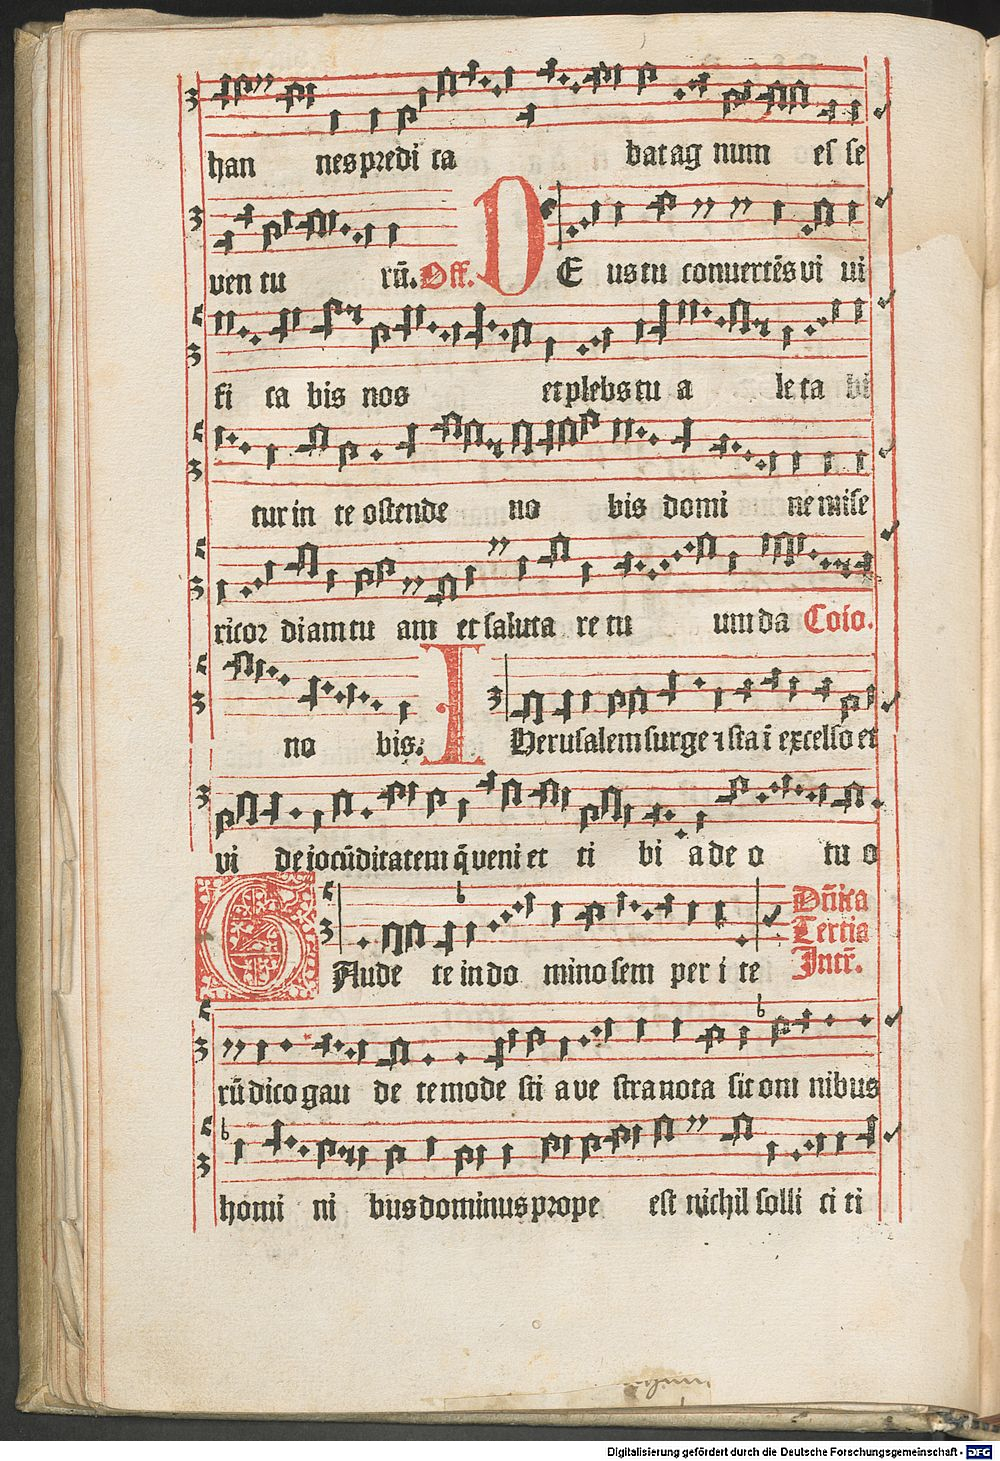 han nes predi ca bat ag num es se
ven tu rū. Off. DE us tu conuertēs vi ui
fi ca bis nos et plebs tu a le ta bi
tur in te ostende no bis domi ne mise
ricor diam tu am et saluta re tu um da Coīo.
no bis. IHerusalem surge ⁊ sta ī excelso et
vi de iocūditatem q̄ veni et ti bi a de o tu o
GAude te in do mino sem per i te Dn̄ica Tertia Intr̄.
rū dico gau de te mode sti a ve stra nota sit om nibus
homi ni bus dominus prope est nichil solli ci ti
Digitalisierung gefördert durch die Deutsche Forschungsgemeinschaft - DFG